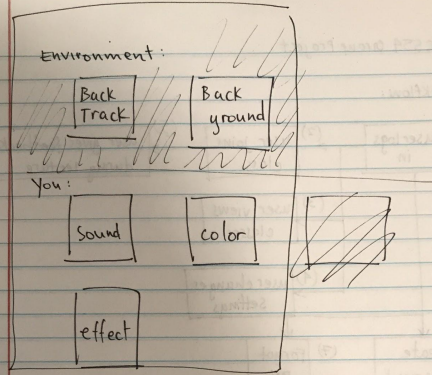 Environment:
Back
Track
Back
ground
You:
Sound
color
effect